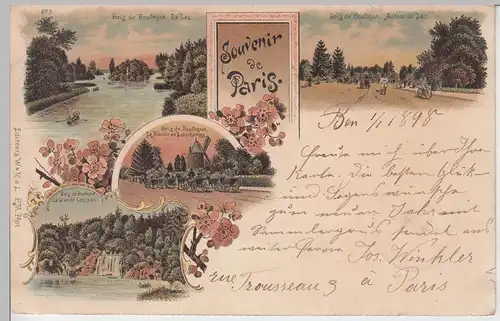 899
Bois de Boulogne Le Lac
Souvenir
de
Paris.
Bois de Boulogne. Autour du Lac
Bois de Boulogne.
Le Moulin de Longchamp
Bois de Boulogne
La Grande Cascade
1/1 1898
Freue mich über Ihre
Karte. die besten Glück-
und Segenswünsche
zum neuen Jahr mit
Sammlergruss sendet aus
weiter Ferne Jos. Winkler
rue Trousseau 9 à Paris